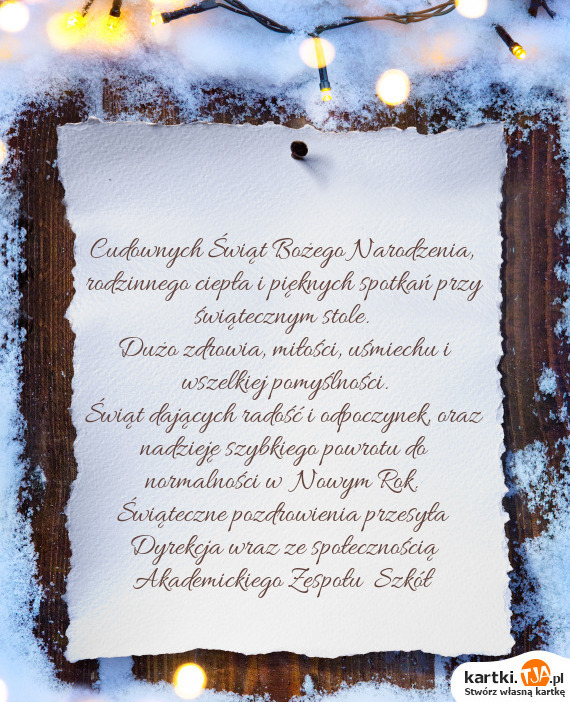 Cudownych Świąt Bożego Narodzenia,
rodzinnego ciepła i pięknych spotkań przy
świątecznym stole.
Dużo zdrowia, miłości, uśmiechu i
wszelkiej pomyślności.
Świąt dających radość i odpoczynek, oraz
nadzieję szybkiego powrotu do
normalności w Nowym Rok.
Świąteczne pozdrowienia przesyła
Dyrekcja wraz ze społecznością
Akademickiego Zespołu Szkół
kartki.TJA.pl
Stwórz własną kartkę